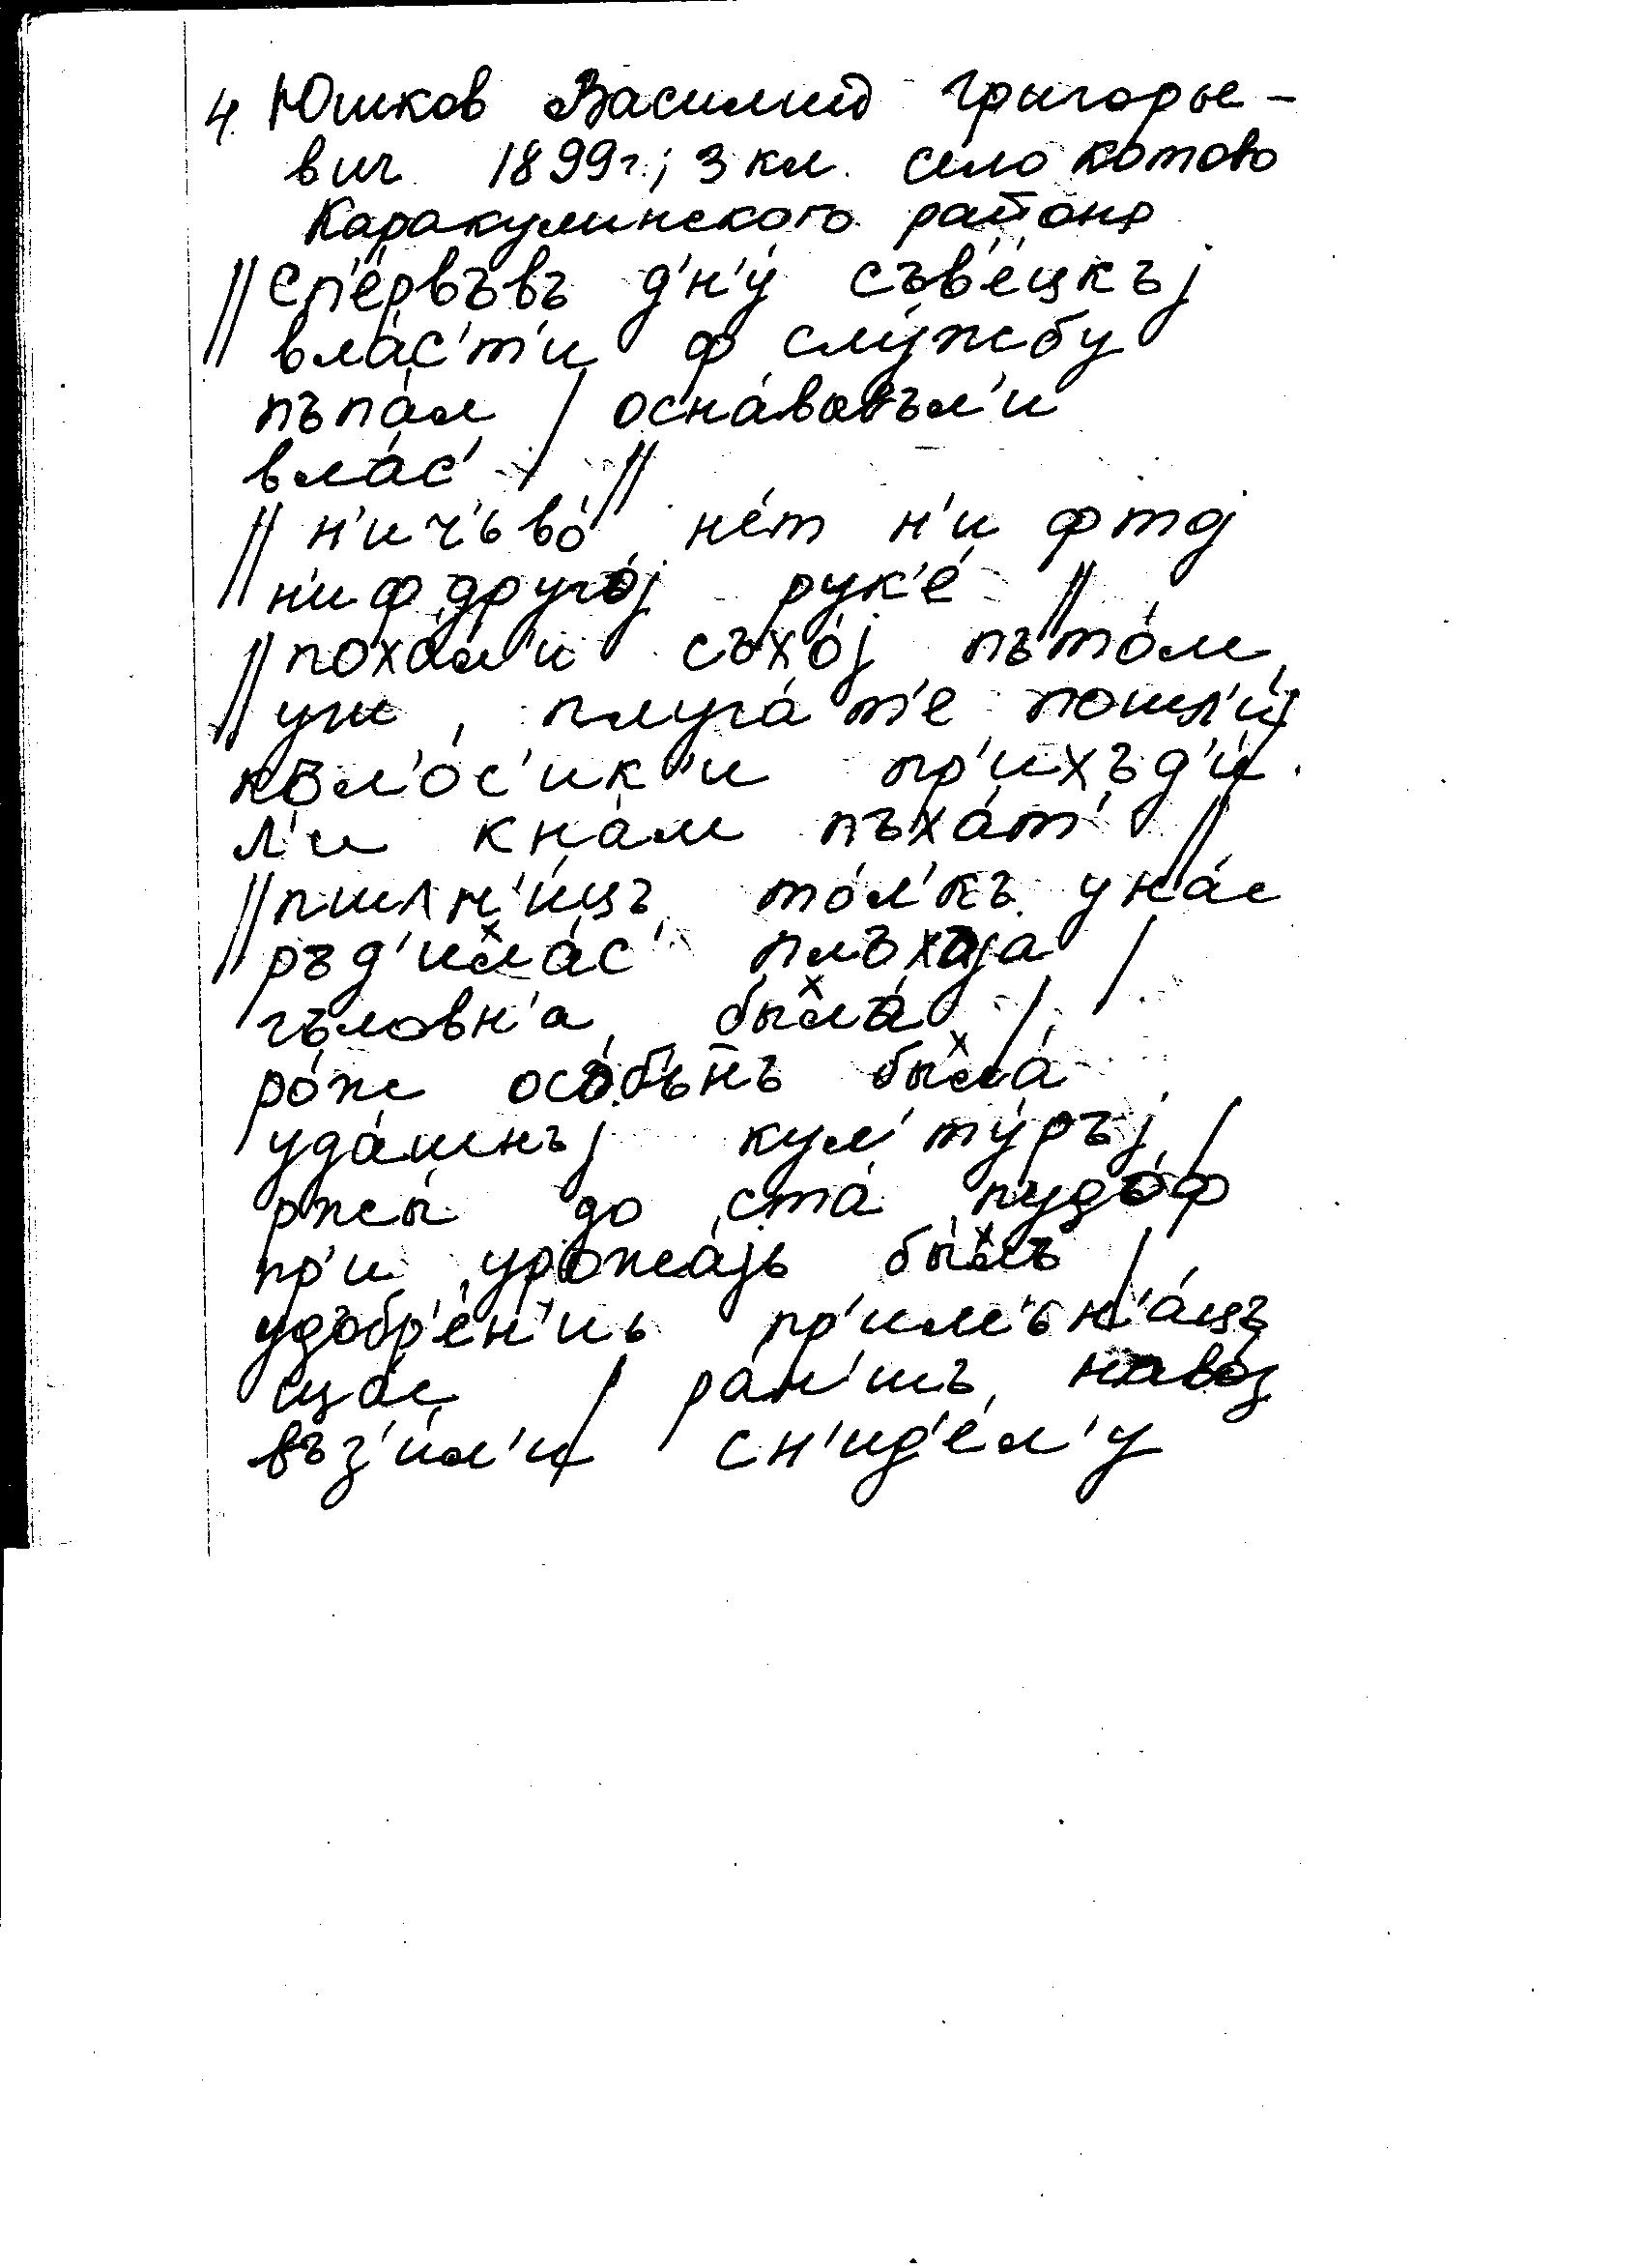 4. Юшков Василий Григорье-
вич 1899г.; 3 кл. село Котово
Каракулинского района
// сп'е́рвъвъ д'н'у́ съв'е́цкъj
// вла́с'т'и ф слу́жбу
пъпа́л / осна́вывъл'и
вла́с' / //
// н'ич'ьво́ не́т н'и фтој
// н'и ф друго́j рук'е́ //
// поха́л'и съхо́j пъто́м
// уш, плуга́ т'е пошл'и́ /
кол'о́с'ик'и пр'ихъд'и́
л'и кна́м пъха́т' //
// пшлн'и́цъ то́л'къ уна́с
// ръд'ила́с' плъхаjа /
гъловн'а была́ /
ро́ж осо́бънъ была́
уда́шнъj кул'ту́ръj /
ржы́ до ста́ пудо́ф
пр'и урожа́jь бы́лъ /
удобр'е́н'иь пр'им'ьн'а́цъ
ща́с / ра́н'шъ наво́з
въз'и́л'и / сн'ид'е́л'у